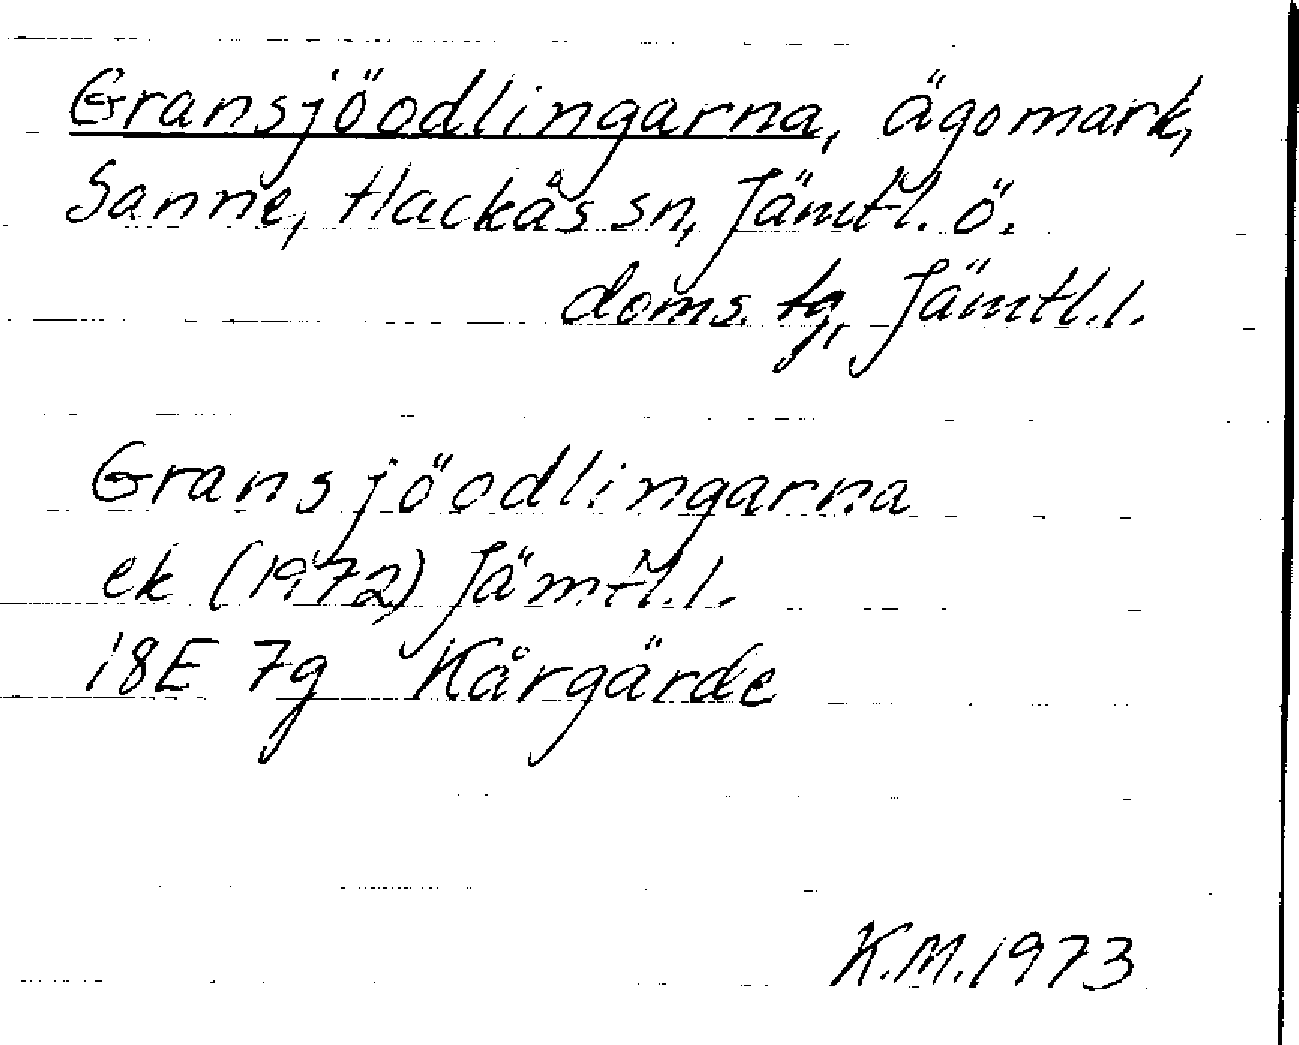 Gransjöodlingarna, ägomark,
Sanne, Hackås sn, Jämtl. ö.
doms. tg, Jämtl.l.
Gransjöodlingarna
ek (1972) Jämtl.l.
18E 7g Kårgärde
K.M.1973